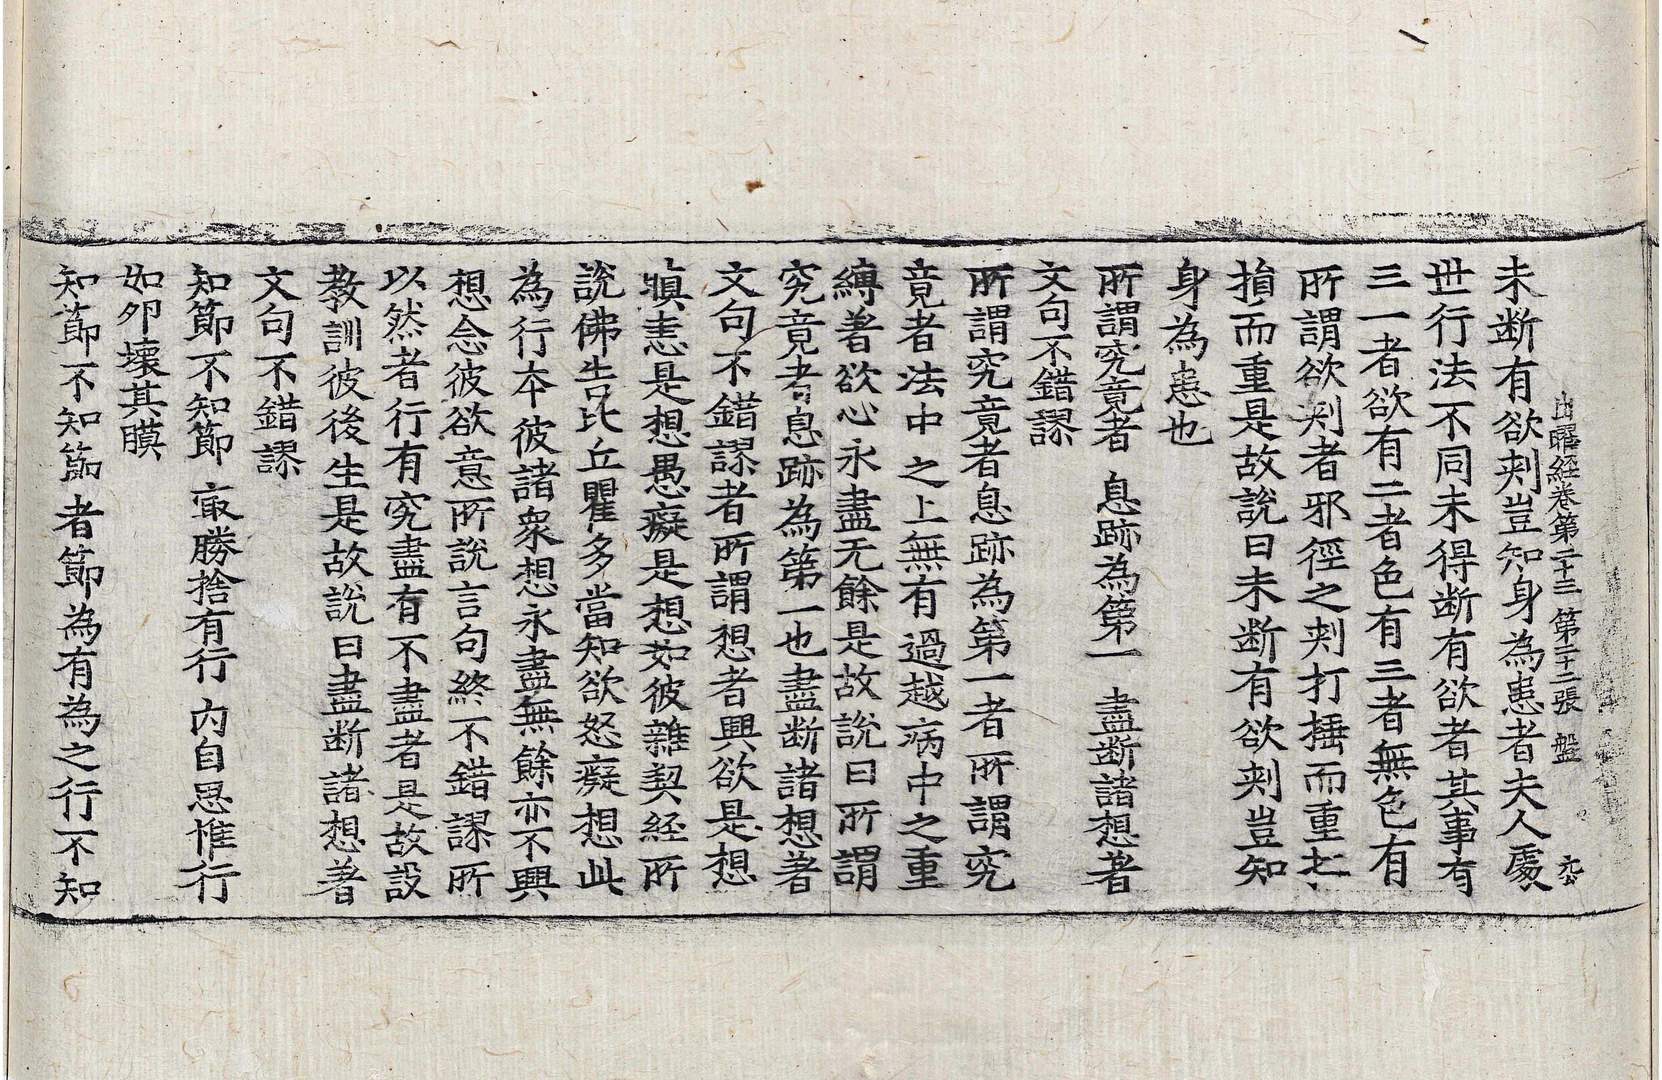 出曜経卷第二十三 第二十二張 盤
未断有欲刾豈知身為患者夫人處
世行法不同未得断有欲者其事有
三一者欲有二者色有三者無色有
所謂欲刾者邪徑之刾打捶而重
㨂而重是故說曰未断有欲刾豈知
身為患也
所謂究竟者 息跡為第一 盡断諸想著
文句不錯謬
所謂究竟者息跡為第一者所謂究
竟者法中之上無有過越病中之重
縛著欲心永盡无餘是故說曰所謂
究竟者息跡為第一也盡断諸想著
文句不錯謬者所謂想者興欲是想
瞋恚是想愚癡是想如彼雜契経所
說佛告比丘瞿多當知欲怒癡想此
為行本彼諸衆想永盡無餘亦不興
想念彼欲意所說言句終不錯謬所
以然者行有究盡有不盡者是故設
教訓彼後生是故說曰盡断諸想著
文句不錯謬
知節不知節 㝡勝捨有行 內自思惟行
如卵壞其膜
知節不知節者節為有為之行不知